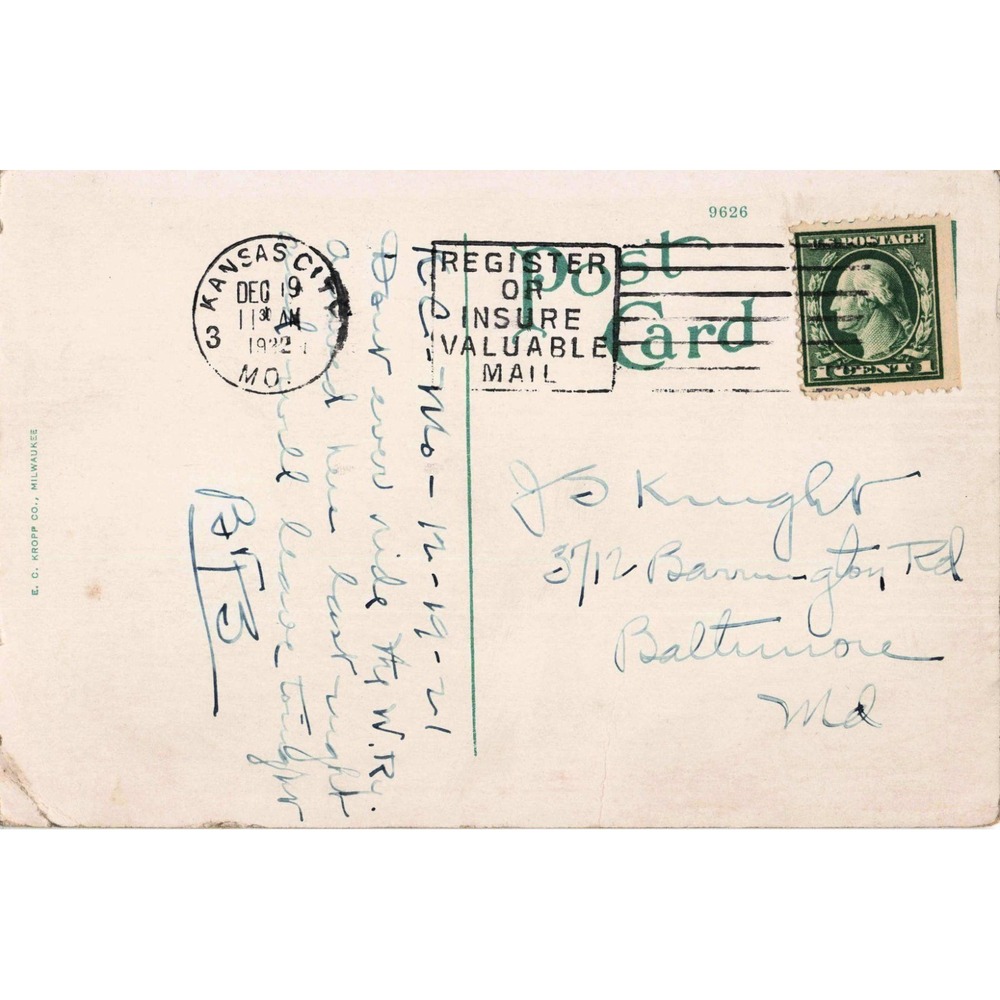 9626
Post
Card
U.S. POSTAGE
1 CENT 1
KANSAS CITY
DEC 19
11 30 AM
1922
MO.
3
REGISTER
OR
INSURE
VALUABLE
MAIL
K.C. - Mo - 12 - 19 - 21
Don't ever ride the W. Ry.
Arrived here last night
and will leave tonight
J S Knight
3712 Barrington Rd
Baltimore
Md
E. C. KROPP CO., MILWAUKEE